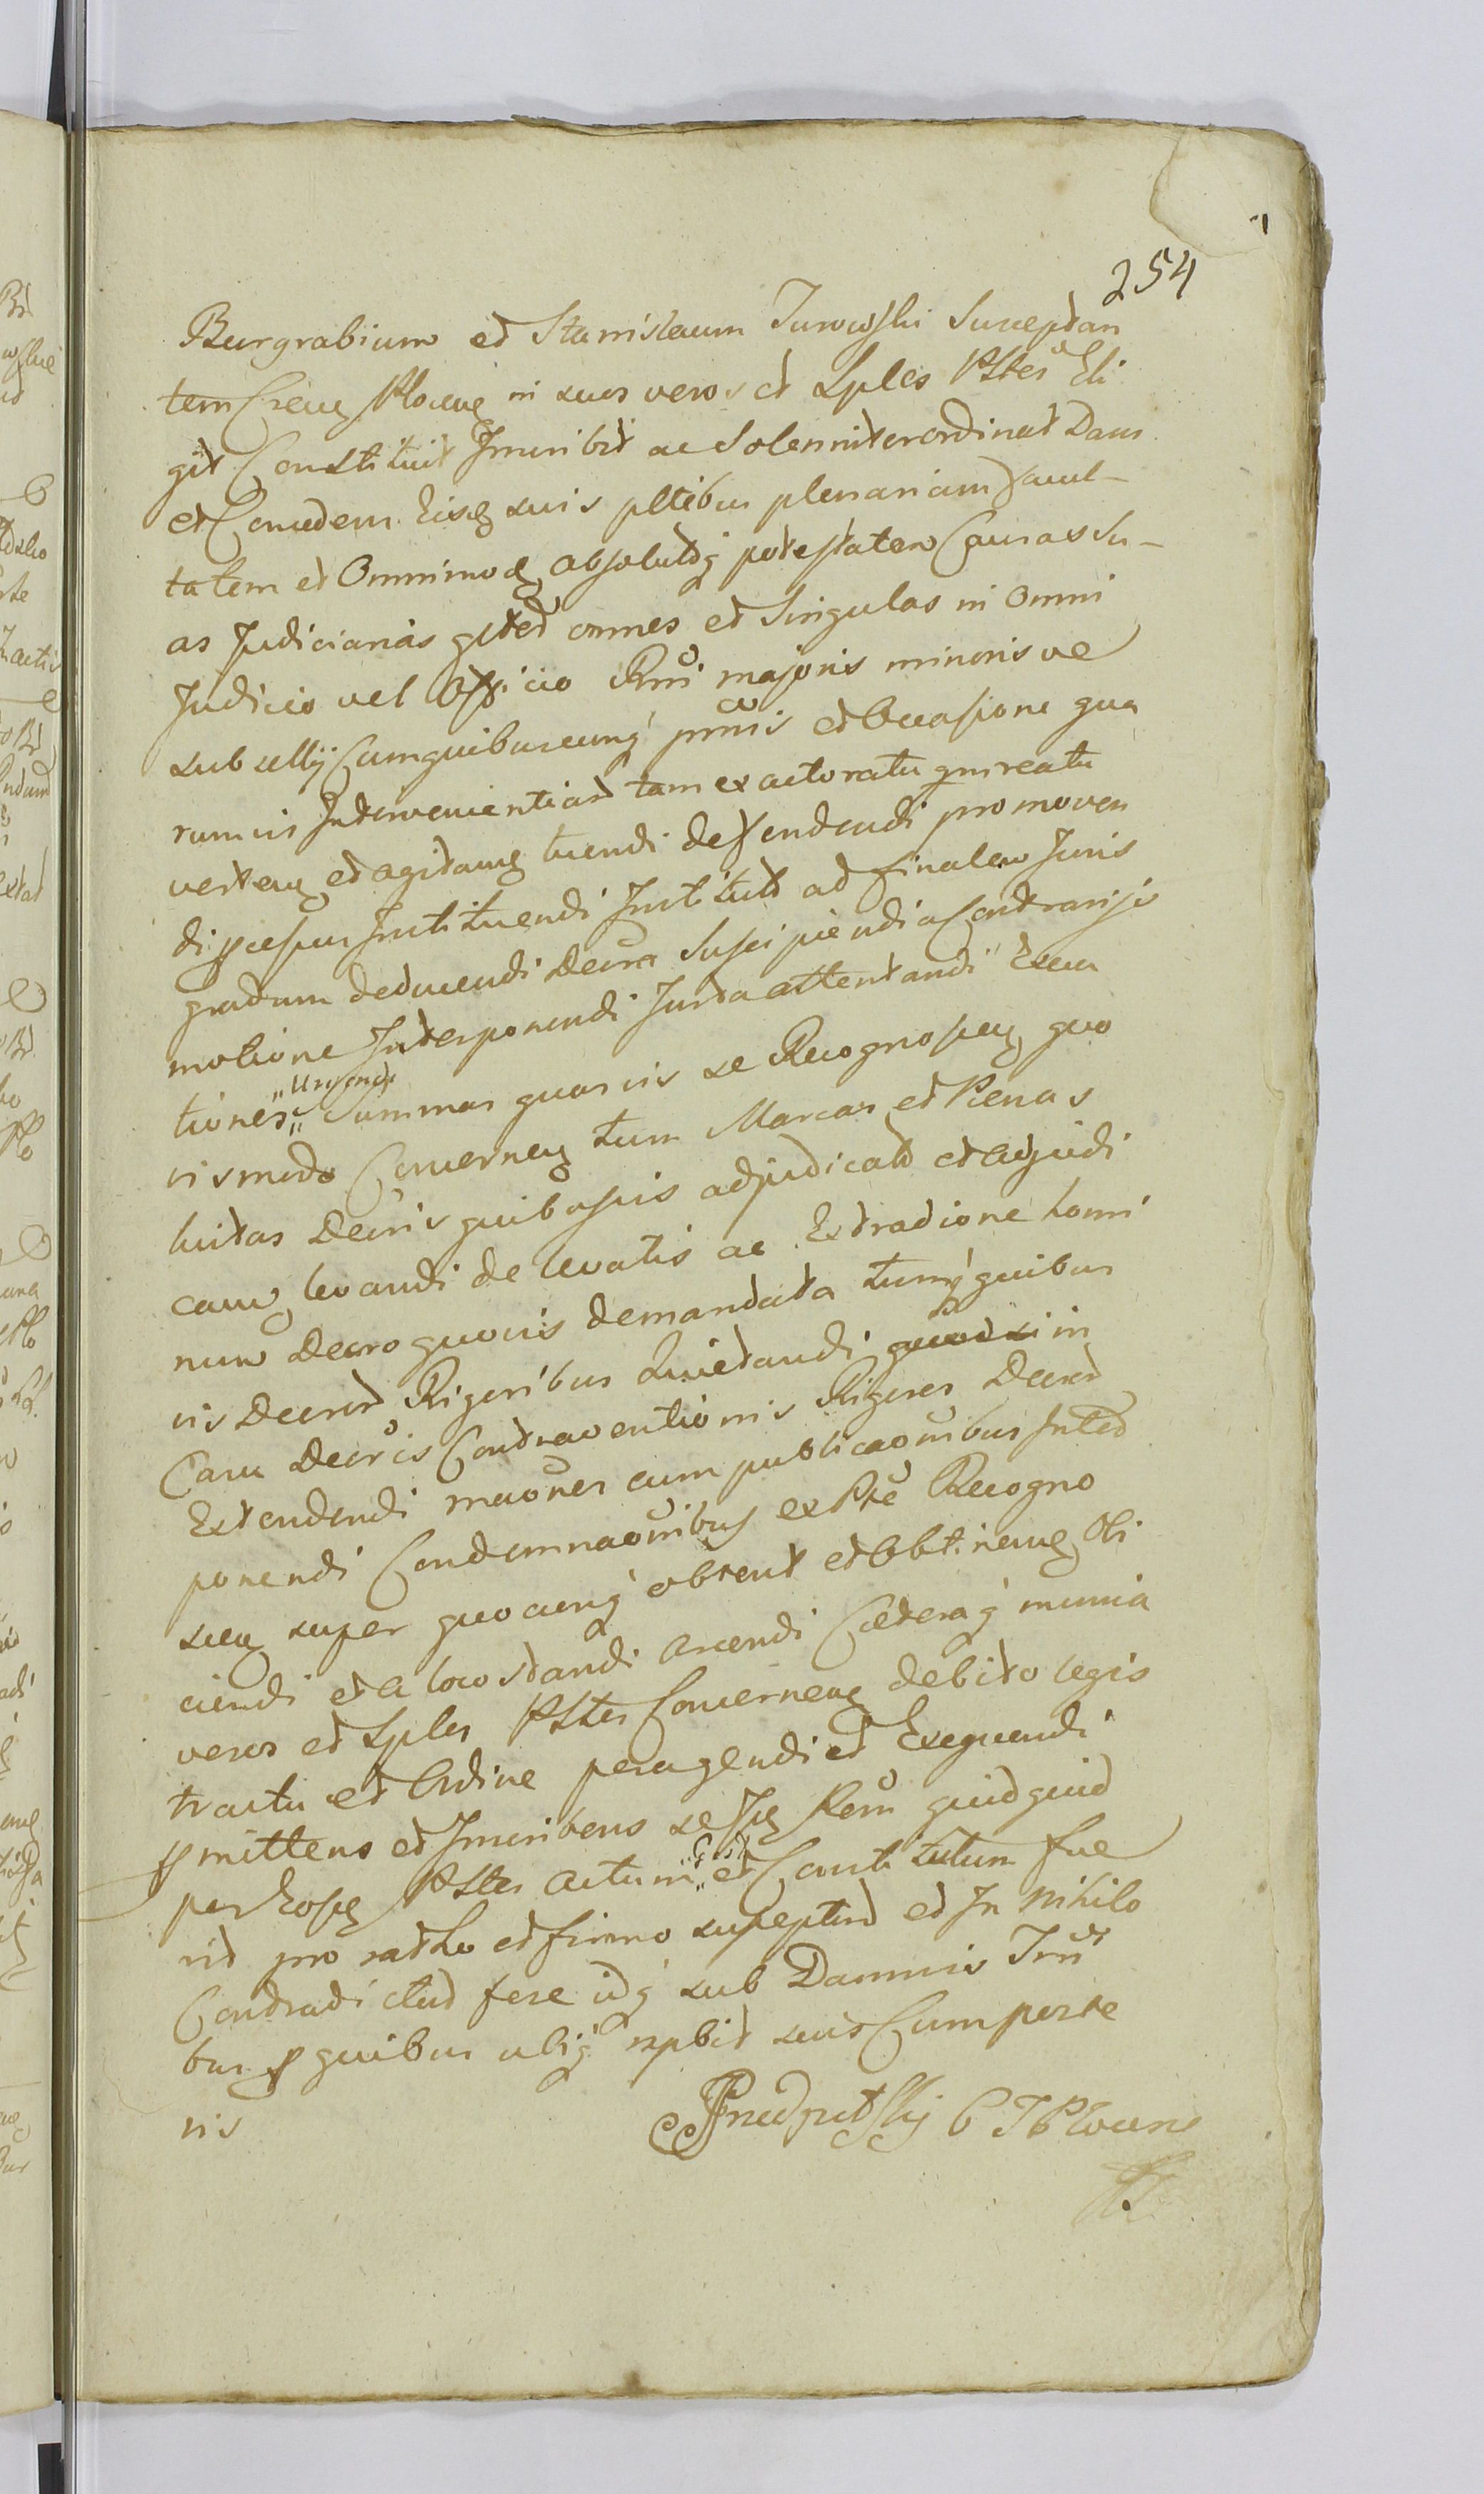 254
Burgrabium et Stanislaum Turowski Susceptan
tem Cscen Plocen in suos veros et Lples Pltes Eli
git Constituit Inscribit ac Solenniter ordinat Dans
et Concedens Eisq suis pltibus plenariam facul-
tatem et Omnimod absolutq potestatem Causas Su-
as Judiciarias omnes et Singulas in omni
Judicio vel Officio Rni majoris minorisve
subsellij Cumquibuscunq prnis et Occasione qua
rumvis Intervenientiar tam ex actoratu qm reatu
verten et agitan tuendi defendendi promoven
di processus Instituendi Institut ad finalem Juris
gradum deducendi Decra Suscipiendi a Contrarijs
motione Interponendi Jurta attentandi Execu
tiones „Urgendi„ Summas quasvis se Recognoscen quo
vismodo Concernen tum Marcas et Penas
luitas Decris quibusvis adjudicat et adjudi
can levandi de levatis ac Extradione homi
num Decro quovis demandata tumq quibus
vis Decror Rigoribus Quietandi in
Casu Decris Contraventionis Rigores Decror
Extendendi maones cum publicaonibus Inter
ponendi Condemnaonibus ex Pte Recogno
scen super quocunq obtent et Obtinen Oli
ciendi et a loco standi arcendi Caeteraq munia
veros et Lples Pltes Concernen debito legis
tractu et Ordine peragendi et Exequendi
pmittens et Inscribens se Ips Rem quidquid
per Eosq Pltes actum et Constitutum fue
rit pro ratho et firmo suscepturu et In nihilo
Contradictur fere idq sub Damnis Trris
bus p quibus ubiq rpbit suis Cum perte
nis